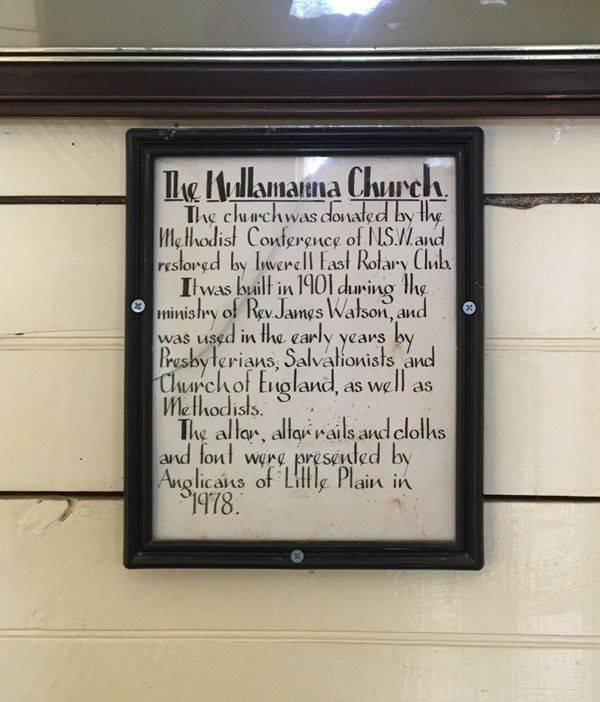 The Kullamanna Church.
The church was donated by the
Methodist Conference of N.S.W. and
restored by Inverell East Rotary Club.
It was built in 1901 during the
ministry of Rev. James Watson, and
was used in the early years by
Presbyterians, Salvationists and
Church of England, as well as
Methodists.
The altar, altar rails and cloths
and font were presented by
Anglicans of Little Plain in
1978.